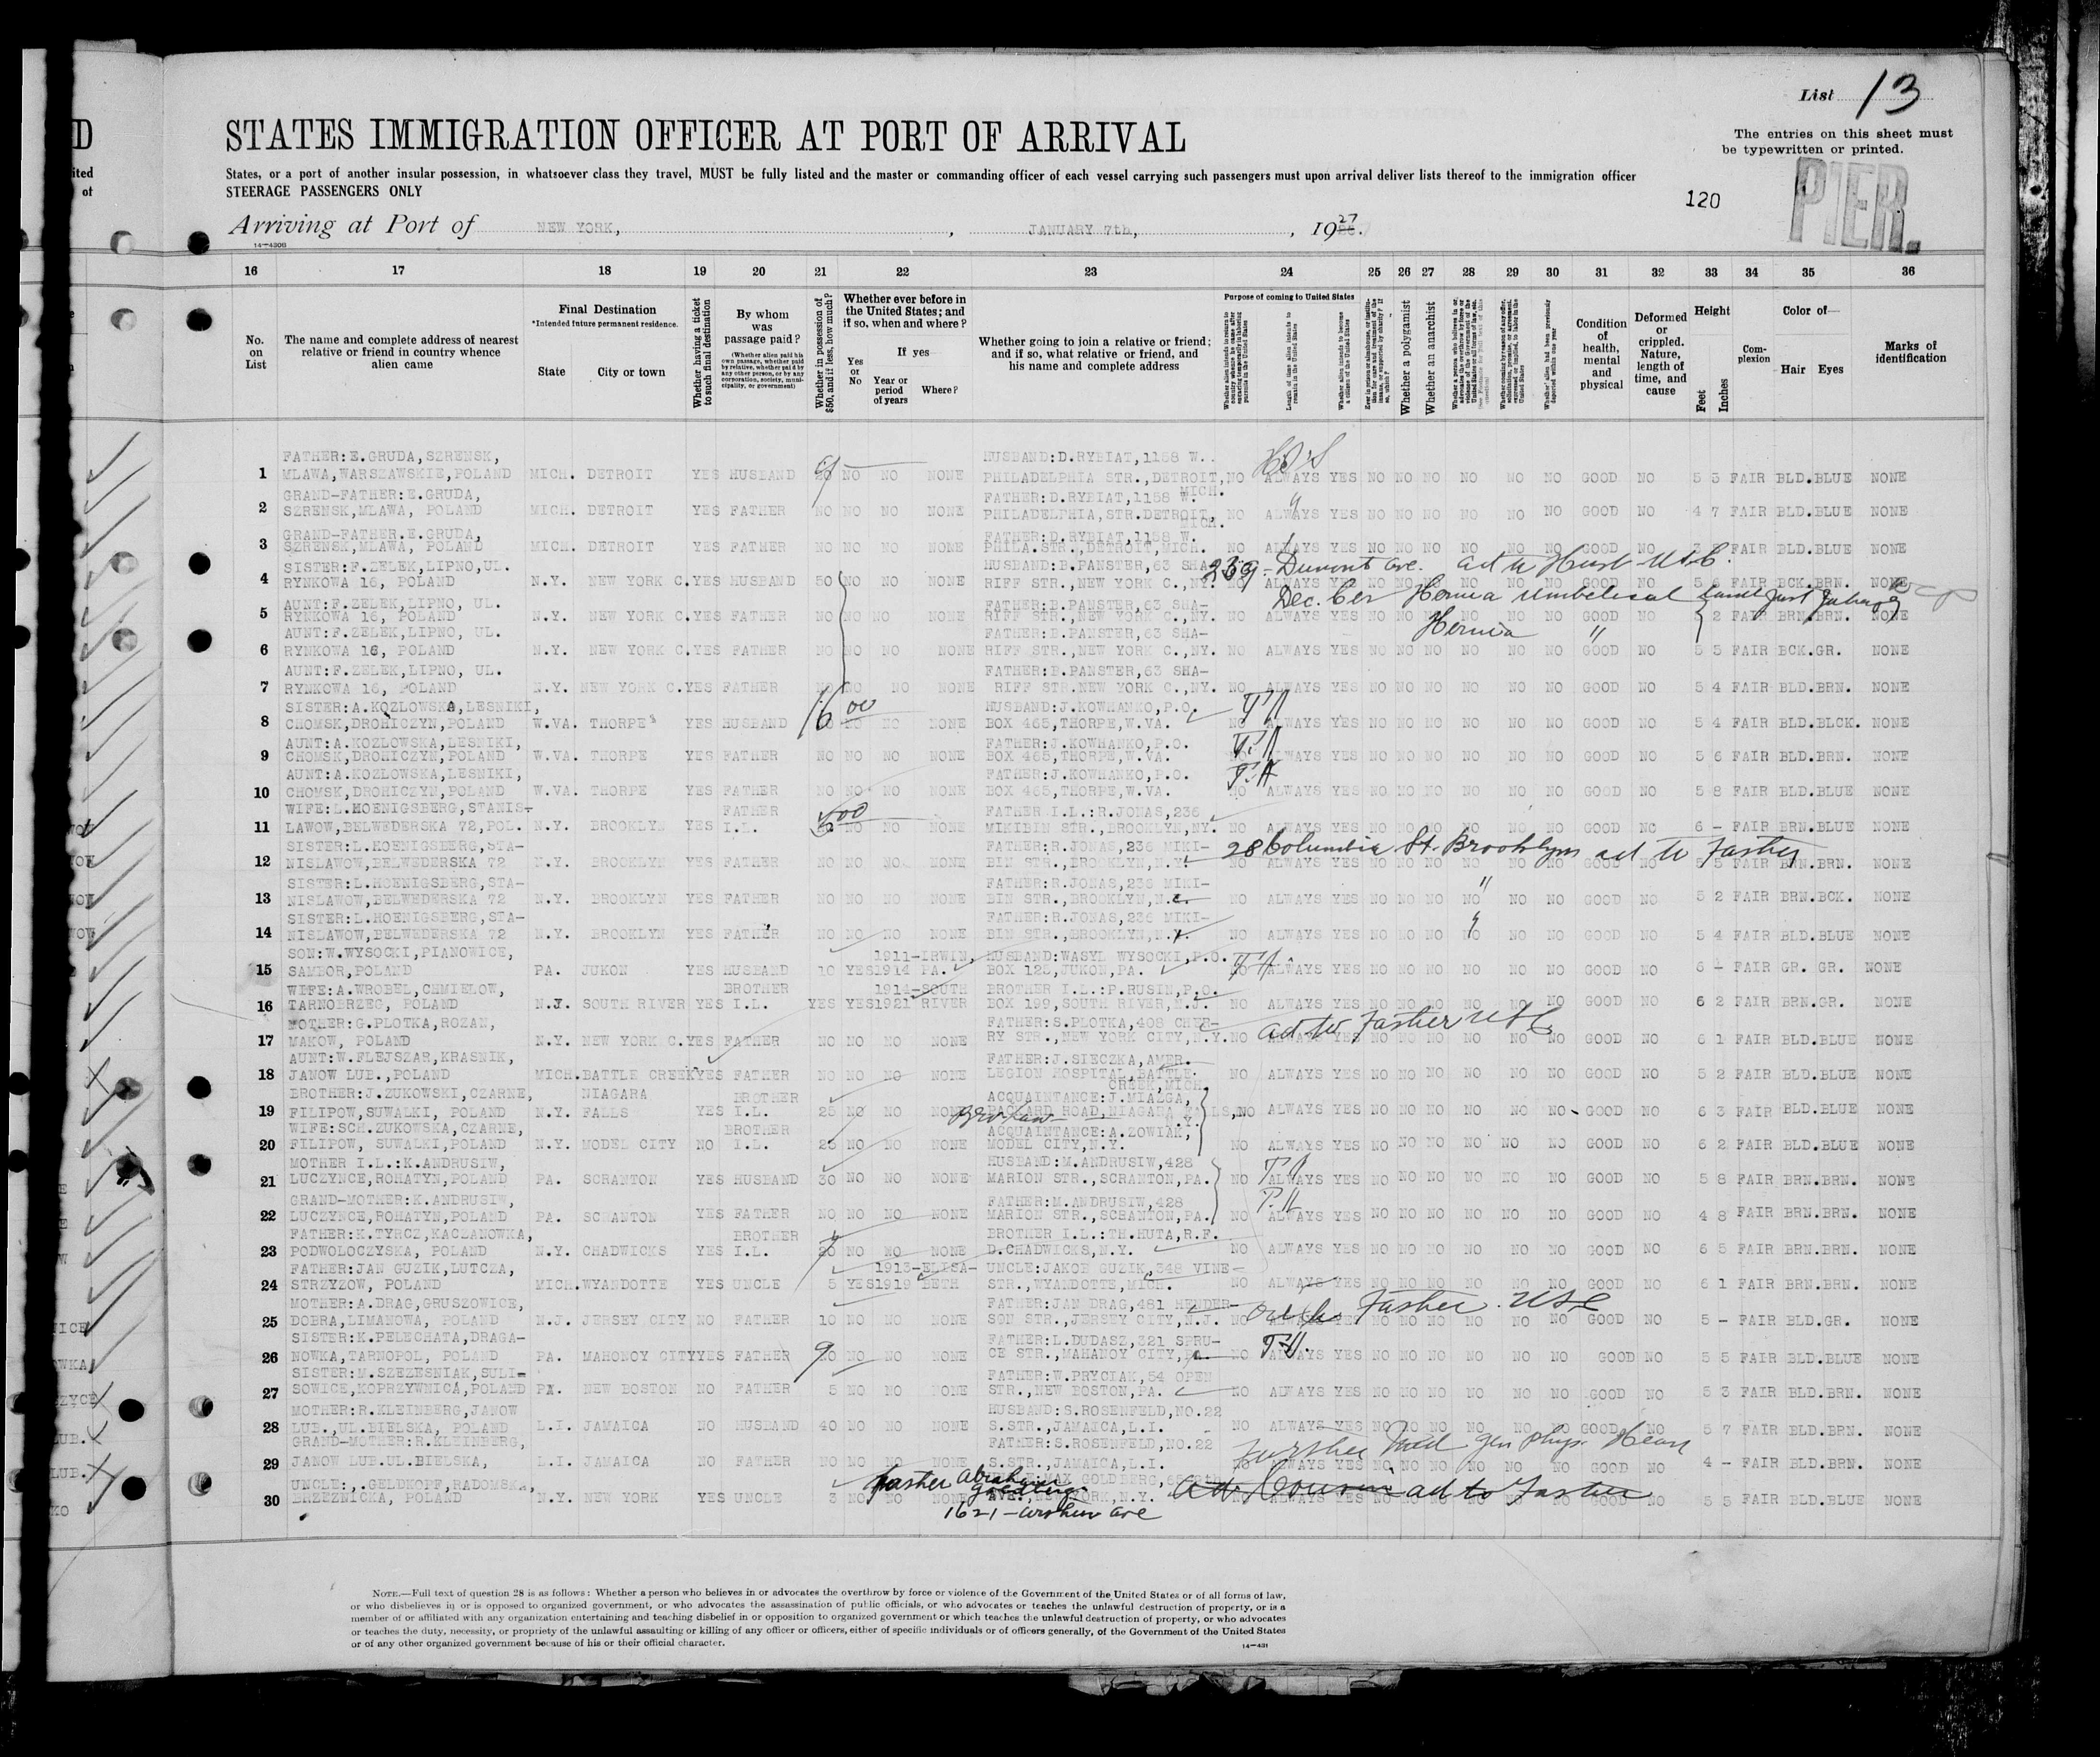 List 13
The entries on this sheet must
be typewritten or printed.
D
STATES IMMIGRATION OFFICER AT PORT OF ARRIVAL
ited
of
States, or a port of another insular possession, in whatsoever class they travel, MUST be fully listed and the master or commanding officer of each vessel carrying such passengers must upon arrival deliver lists thereof to the immigration officer
STEERAGE PASSENGERS ONLY
120
PIER.
Arriving at Port of NEW YORK, , JANUARY 7th, , 1927.
14-430B
16 17 18 19 20 21 22 23 24 25 26 27 28 29 30 31 32 33 34 35 36
No. on List
The name and complete address of nearest relative or friend in country whence alien came
Final Destination
*Intended future permanent residence.
State City or town
Whether having a ticket to such final destination
By whom was passage paid?
(Whether alien paid his own passage, whether paid by relative, whether paid by any other person, or by any corporation, society, municipality, or government)
Whether in possession of $50, and if less, how much?
Whether ever before in the United States; and if so, when and where?
Yes or No
If yes—
Year or period of years
Where?
Whether going to join a relative or friend; and if so, what relative or friend, and his name and complete address
Purpose of coming to United States
Length of time alien intends to remain in the United States
Whether alien intends to become a citizen of the United States
Whether a polygamist
Whether an anarchist
Condition of health, mental and physical
Deformed or crippled. Nature, length of time, and cause
Height
Feet Inches
Complexion
Color of—
Hair Eyes
Marks of identification
FATHER:E.GRUDA,SZRENSK, HUSBAND:D.RYBIAT,1158 W.
1 MLAWA,WARSZAWSKIE,POLAND MICH. DETROIT YES HUSBAND NO NO NONE PHILADELPHIA STR.,DETROIT, NO ALWAYS YES NO NO NO NO NO NO GOOD NO 5 3 FAIR BLD.BLUE NONE
MICH.
GRAND-FATHER:E.GRUDA, FATHER:D.RYBIAT,1158 W.
2 SZRENSK,MLAWA, POLAND MICH. DETROIT YES FATHER NO NO NO NONE PHILADELPHIA,STR.DETROIT, NO ALWAYS YES NO NO NO NO NO NO GOOD NO 4 7 FAIR BLD.BLUE NONE
MICH.
GRAND-FATHER.E.GRUDA, FATHER:D.RYBIAT,1158 W.
3 SZRENSK,MLAWA, POLAND MICH. DETROIT YES FATHER NO NO NO NONE PHILA.STR.,DETROIT,MICH. NO ALWAYS YES NO NO NO NO NO NO GOOD NO FAIR BLD.BLUE NONE
SISTER:F.ZELEK,LIPNO,UL. HUSBAND:B.PANSTER,63 SHA- 239 - Dumont ave. ad to Husb USC.
4 RYNKOWA 16, POLAND N.Y. NEW YORK C. YES HUSBAND 50 NO NO NONE RIFF STR.,NEW YORK C.,NY. NO ALWAYS YES NO NO NO NO NO NO GOOD NO 5 6 FAIR BCK.BRN. NONE
Dec. Cer Hernia umbelical
AUNT:F.ZELEK,LIPNO, UL. FATHER:B.PANSTER,63 SHA-
5 RYNKOWA 16, POLAND N.Y. NEW YORK C. YES FATHER NO NO NO NONE RIFF STR.,NEW YORK C.,NY. NO ALWAYS YES NO NO NO NO NO NO GOOD NO 2 FAIR BRN.BRN. NONE
Hernia "
AUNT:F.ZELEK,LIPNO, UL. FATHER:B.PANSTER,63 SHA-
6 RYNKOWA 16, POLAND N.Y. NEW YORK C. YES FATHER NO NO NO NONE RIFF STR.,NEW YORK C.,NY. NO ALWAYS YES NO NO NO NO NO NO GOOD NO 5 5 FAIR BCK.GR. NONE
AUNT:F.ZELEK,LIPNO, UL. FATHER:B.PANSTER,63 SHA-
7 RYNKOWA 16, POLAND N.Y. NEW YORK C. YES FATHER NO NO NO NONE RIFF STR.NEW YORK C.,NY. NO ALWAYS YES NO NO NO NO NO NO GOOD NO 5 4 FAIR BLD.BRN. NONE
SISTER:A.KOZLOWSKA,LESNIKI, HUSBAND:J.KOWHANKO,P.O.
8 CHOMSK,DROHICZYN,POLAND W.VA. THORPE YES HUSBAND 16 00 NO NO NONE BOX 465,THORPE,W.VA. NO ALWAYS YES NO NO NO NO NO NO GOOD NO 5 4 FAIR BLD.BLCK. NONE
AUNT:A.KOZLOWSKA,LESNIKI, FATHER:J.KOWHANKO,P.O.
9 CHOMSK,DROHICZYN,POLAND W.VA. THORPE YES FATHER NO NO NO NONE BOX 465,THORPE,W.VA. ALWAYS YES NO NO NO NO NO NO GOOD NO 5 6 FAIR BLD.BRN. NONE
AUNT:A.KOZLOWSKA,LESNIKI, FATHER:J.KOWHANKO,P.O.
10 CHOMSK,DROHICZYN,POLAND W.VA. THORPE YES FATHER NO NO NO NONE BOX 465,THORPE,W.VA. NO ALWAYS YES NO NO NO NO NO NO GOOD NO 5 8 FAIR BLD.BLUE NONE
WIFE:L.HOENIGSBERG,STANIS- FATHER FATHER I.L.:R.JONAS,236
11 LAWOW,BELWEDERSKA 72,POL. N.Y. BROOKLYN YES I.L. NO NO NONE MIKIBIN STR.,BROOKLYN,NY. NO ALWAYS YES NO NO NO NO NO NO GOOD NO 6 - FAIR BRN.BLUE NONE
SISTER:L.HOENIGSBERG,STA- FATHER:R.JONAS,236 MIKI- 28 Columbia St. Brooklyn ad to Father
12 NISLAWOW,BELWEDERSKA 72 N.Y. BROOKLYN YES FATHER NO NO NO NONE BIN STR.,BROOKLYN,N.Y. NO ALWAYS YES NO NO NO NO NO NO GOOD NO 5 FAIR BRN.BRN. NONE
SISTER:L.HOENIGSBERG,STA- FATHER:R.JONAS,236 MIKI- "
13 NISLAWOW,BELWEDERSKA 72 N.Y. BROOKLYN YES FATHER NO NO NO NONE BIN STR.,BROOKLYN,N. NO ALWAYS YES NO NO NO NO NO NO GOOD NO 5 2 FAIR BRN.BCK. NONE
SISTER:L.HOENIGSBERG,STA- FATHER:R.JONAS,236 MIKI- "
14 NISLAWOW,BELWEDERSKA 72 N.Y. BROOKLYN YES FATHER NO NO NO NONE BIN STR.,BROOKLYN,N.Y. NO ALWAYS YES NO NO NO NO NO NO GOOD NO 5 4 FAIR BLD.BLUE NONE
SON:W.WYSOCKI,PIANOWICE, 1911-IRWIN, HUSBAND:WASYL WYSOCKI,P.O.
15 SAMBOR,POLAND PA. JUKON YES HUSBAND 10 YES 1914 PA. BOX 125,JUKON,PA. NO ALWAYS YES NO NO NO NO NO NO GOOD NO 6 - FAIR GR. GR. NONE
WIFE:A.WROBEL,CHMIELOW, BROTHER 1914-SOUTH BROTHER I.L.:P.RUSIN,P.O.
16 TARNOBRZEG, POLAND N.J. SOUTH RIVER YES I.L. YES YES 1921 RIVER BOX 199,SOUTH RIVER,N.J. NO ALWAYS YES NO NO NO NO NO NO GOOD NO 6 2 FAIR BRN.GR. NONE
MOTHER:G.PLOTKA,ROZAN, FATHER:S.PLOTKA,408 CHER- ad to Father USC
17 MAKOW, POLAND N.Y. NEW YORK C. YES FATHER NO NO NO NONE RY STR.,NEW YORK CITY,N.Y. NO ALWAYS YES NO NO NO NO NO NO GOOD NO 6 1 FAIR BLD.BLUE NONE
AUNT:W.FLEJSZAR,KRASNIK, FATHER:J.SIECZKA,AMER.
18 JANOW LUB.,POLAND MICH. BATTLE CREEK YES FATHER NO NO NO NONE LEGION HOSPITAL,BATTLE- NO ALWAYS YES NO NO NO NO NO NO GOOD NO 5 2 FAIR BLD.BLUE NONE
CREEK,MICH.
BROTHER:J.ZUKOWSKI,CZARNE, NIAGARA BROTHER ACQUAINTANCE:J.MIAZGA,
19 FILIPOW,SUWALKI, POLAND N.Y. FALLS YES I.L. 25 NO NO NONE ROAD,NIAGARA FALLS, NO ALWAYS YES NO NO NO NO NO NO GOOD NO 6 3 FAIR BLD.BLUE NONE
N.Y.
WIFE:SCH.ZUKOWSKA,CZARNE, BROTHER ACQUAINTANCE:A.ZOWIAK,
20 FILIPOW, SUWALKI,POLAND N.Y. MODEL CITY NO I.L. 25 NO NO NONE MODEL CITY,N.Y. NO ALWAYS YES NO NO NO NO NO NO GOOD NO 6 2 FAIR BLD.BLUE NONE
MOTHER I.L.:K.ANDRUSIW, HUSBAND:M.ANDRUSIW,428
21 LUCZYNCE,ROHATYN,POLAND PA. SCRANTON YES HUSBAND 30 NO NO NONE MARION STR.,SCRANTON,PA. NO ALWAYS YES NO NO NO NO NO NO GOOD NO 5 8 FAIR BRN.BRN. NONE
GRAND-MOTHER:K.ANDRUSIW, FATHER:M.ANDRUSIW,428
22 LUCZYNCE,ROHATYN,POLAND PA. SCRANTON YES FATHER NO NO NO NONE MARION STR.,SCRANTON,PA. NO ALWAYS YES NO NO NO NO NO NO GOOD NO 4 8 FAIR BRN.BRN. NONE
FATHER:K.TYRCZ,KACZANOWKA, BROTHER BROTHER I.L.:TH.HUTA,R.F.
23 PODWOLOCZYSKA, POLAND N.Y. CHADWICKS YES I.L. 20 NO NO NONE D.CHADWICKS,N.Y. NO ALWAYS YES NO NO NO NO NO NO GOOD NO 6 5 FAIR BRN.BRN. NONE
FATHER:JAN GUZIK,LUTCZA, 1913-ELISA- UNCLE:JAKOB GUZIK,348 VINE-
24 STRZYZOW, POLAND MICH. WYANDOTTE YES UNCLE 5 YES 1919 BETH STR.,WYANDOTTE,MICH. NO ALWAYS YES NO NO NO NO NO NO GOOD NO 6 1 FAIR BRN.BRN. NONE
MOTHER:A.DRAG,GRUSZOWICE, FATHER:JAN DRAG,481 HENDER- ad to Father. USC
25 DOBRA,LIMANOWA, POLAND N.J. JERSEY CITY NO FATHER 10 NO NO NONE SON STR.,JERSEY CITY,N.J. NO ALWAYS YES NO NO NO NO NO NO GOOD NO 5 - FAIR BLD.GR. NONE
SISTER:K.PELECHATA,DRAGA- FATHER:L.DUDASZ,321 SPRU-
26 NOWKA,TARNOPOL, POLAND PA. MAHONOY CITY YES FATHER NO NO NONE CE STR.,MAHANOY CITY, NO ALWAYS YES NO NO NO NO NO NO GOOD NO 5 5 FAIR BLD.BLUE NONE
SISTER:M.SZEZESNIAK,SULI- FATHER:W.PRYCIAK,54 OPEN
27 SOWICE,KOPRZYWNICA,POLAND PA. NEW BOSTON NO FATHER 5 NO NO NONE STR.,NEW BOSTON,PA. NO ALWAYS YES NO NO NO NO NO NO GOOD NO 5 3 FAIR BLD.BRN. NONE
MOTHER:R.KLEINBERG,JANOW HUSBAND:S.ROSENFELD,NO.22
28 LUB.,UL.BIELSKA, POLAND L.I. JAMAICA NO HUSBAND 40 NO NO NONE S.STR.,JAMAICA,L.I. NO ALWAYS YES NO NO NO NO NO NO GOOD NO 5 7 FAIR BLD.BRN. NONE
GRAND-MOTHER:R.KLEINBERG, FATHER:S.ROSENFELD,NO.22
29 JANOW LUB.UL.BIELSKA, L.I. JAMAICA NO FATHER NO NO NO NONE S.STR.,JAMAICA,L.I. NO ALWAYS YES NO NO NO NO NO NO GOOD NO 4 - FAIR BLD.BLUE NONE
UNCLE:,.GELDKOPF,RADOMSKA, Father Abraham MAX GOLDBERG,
30 BRZEZNICKA, POLAND N.Y. NEW YORK YES UNCLE 3 NO NO NONE AVE. YORK,N.Y. NO ALWAYS YES NO NO NO NO NO NO GOOD NO 5 5 FAIR BLD.BLUE NONE
ad to Father
1621 -
NOTE.—Full text of question 28 is as follows: Whether a person who believes in or advocates the overthrow by force or violence of the Government of the United States or of all forms of law,
or who disbelieves in or is opposed to organized government, or who advocates the assassination of public officials, or who advocates or teaches the unlawful destruction of property, or is a
member of or affiliated with any organization entertaining and teaching disbelief in or opposition to organized government or which teaches the unlawful destruction of property, or who advocates
or teaches the duty, necessity, or propriety of the unlawful assaulting or killing of any officer or officers, either of specific individuals or of officers generally, of the Government of the United States
or of any other organized government because of his or their official character.
14-431